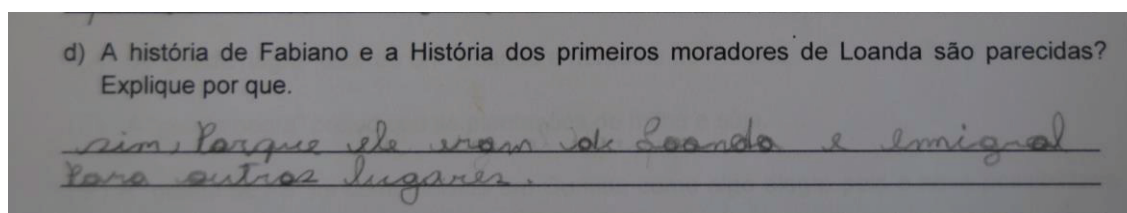 d) A história de Fabiano e a História dos primeiros moradores de Loanda são parecidas?
Explique por que.
sim, Porque ele eram de Loanda e emigral
Para outros lugares.